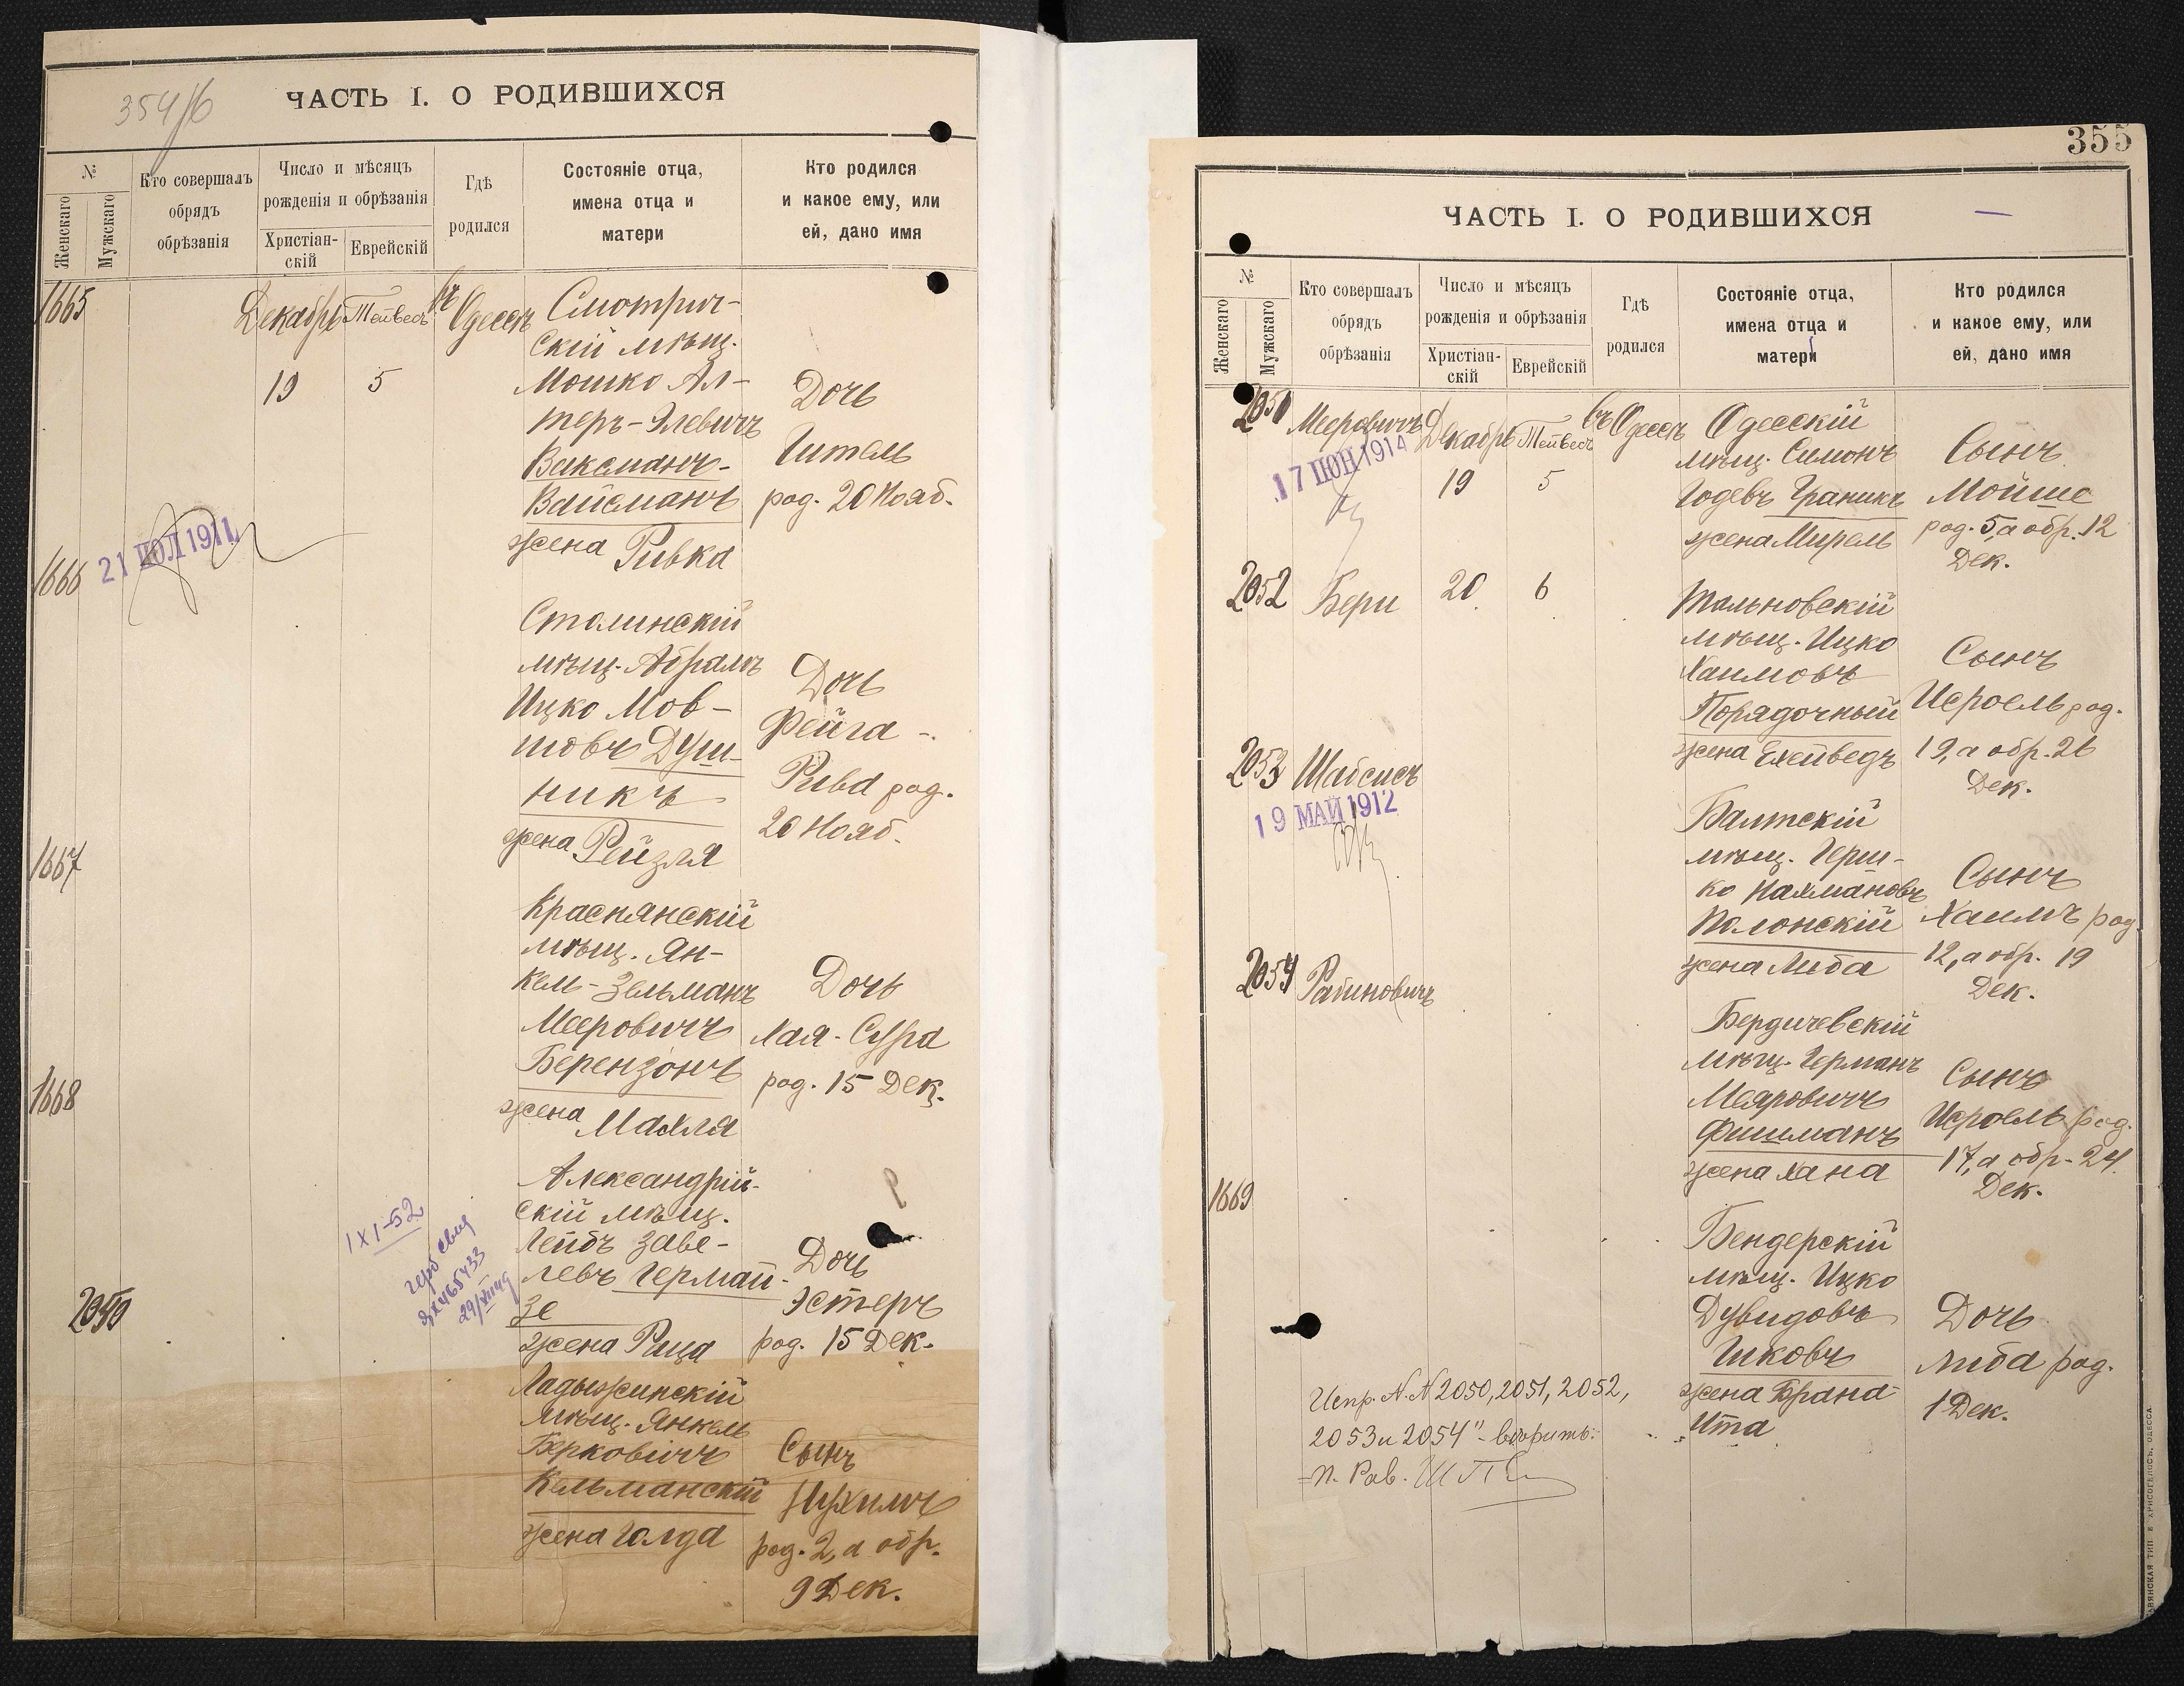 354/б
ЧАСТЬ I. О РОДИВШИХСЯ
№
Женскаго
Мужскаго
Кто совершалъ
обрядъ
обрѣзанія
Число и мѣсяцъ
рожденія и обрѣзанія
Христіан-
скій
Еврейскій
Гдѣ
родился
Состояніе отца,
имена отца и
матери
Кто родился
и какое ему, или
ей, дано имя
1665
Декабрь
Тейвесъ
въ Одессѣ
19
5
Смотрич-
скій мѣщ.
Мошко Ал-
теръ-Элевичъ
Ваксманъ-
Вайсманъ
жена Ривка
Дочь
Гитель
род. 20 Нояб.
1666
21 ІЮЛ 1911
Столинскій
мѣщ. Абрамъ
Ицко Мов-
шовъ Душ-
никъ
жена Рейзля
Дочь
Фейга -
Рива род.
20 Нояб.
1667
Краснянскій
мѣщ. Ян-
кель-Зельманъ
Мееровичъ
Березонъ
жена Махля
Дочь
Хая-Сура
род. 15 Дек.
1668
Александрій-
скій мѣщ.
Лейбъ Заве-
левъ Гермай-
зе
жена Рица
Дочь
Эстеръ
род. 15 Дек.
1 XI-52
2050
Ладыжинскій
мѣщ. Янкель
Берковичъ
Кельманскій
жена Голда
Сынъ
Нухимъ
род. 2, а обр.
9 Дек.
355
ЧАСТЬ I. О РОДИВШИХСЯ
№
Женскаго
Мужскаго
Кто совершалъ
обрядъ
обрѣзанія
Число и мѣсяцъ
рожденія и обрѣзанія
Христіан-
скій
Еврейскій
Гдѣ
родился
Состояніе отца,
имена отца и
матери
Кто родился
и какое ему, или
ей, дано имя
2051
Мееровичъ
Декабрь
Тейвесъ
въ Одессѣ
17 ІЮН 1914
19
5
Одесскій
мѣщ. Симонъ
Годевъ Граникъ
жена Мирель
Сынъ
Мойше
род. 5, а обр. 12
Дек.
2052
Бери
20
6
Тальновскій
мѣщ. Ицко
Хаимовъ
Порядочный
жена Ехейведъ
Сынъ
Исроель род.
19, а обр. 26
Дек.
2053
Шайсисъ
19 МАЙ 1912
Балтскій
мѣщ. Герш-
ко Нахмановъ
Полонскій
жена Люба
Сынъ
Хаимъ род.
12, а обр. 19
Дек.
2054
Рабиновичъ
Бердичевскій
мѣщ. Германъ
Меяровичъ
Фишманъ
жена Хана
Сынъ
Исроель род.
17, а обр. 24
Дек.
1669
Бендерскій
мѣщ. Ицко
Дувидовъ
Ицковъ
жена Брана
Ита
Дочь
Люба род.
1 Дек.
Испр. №№ 2050, 2051, 2052,
2053 и 2054" - вѣрить:
П. Рав.